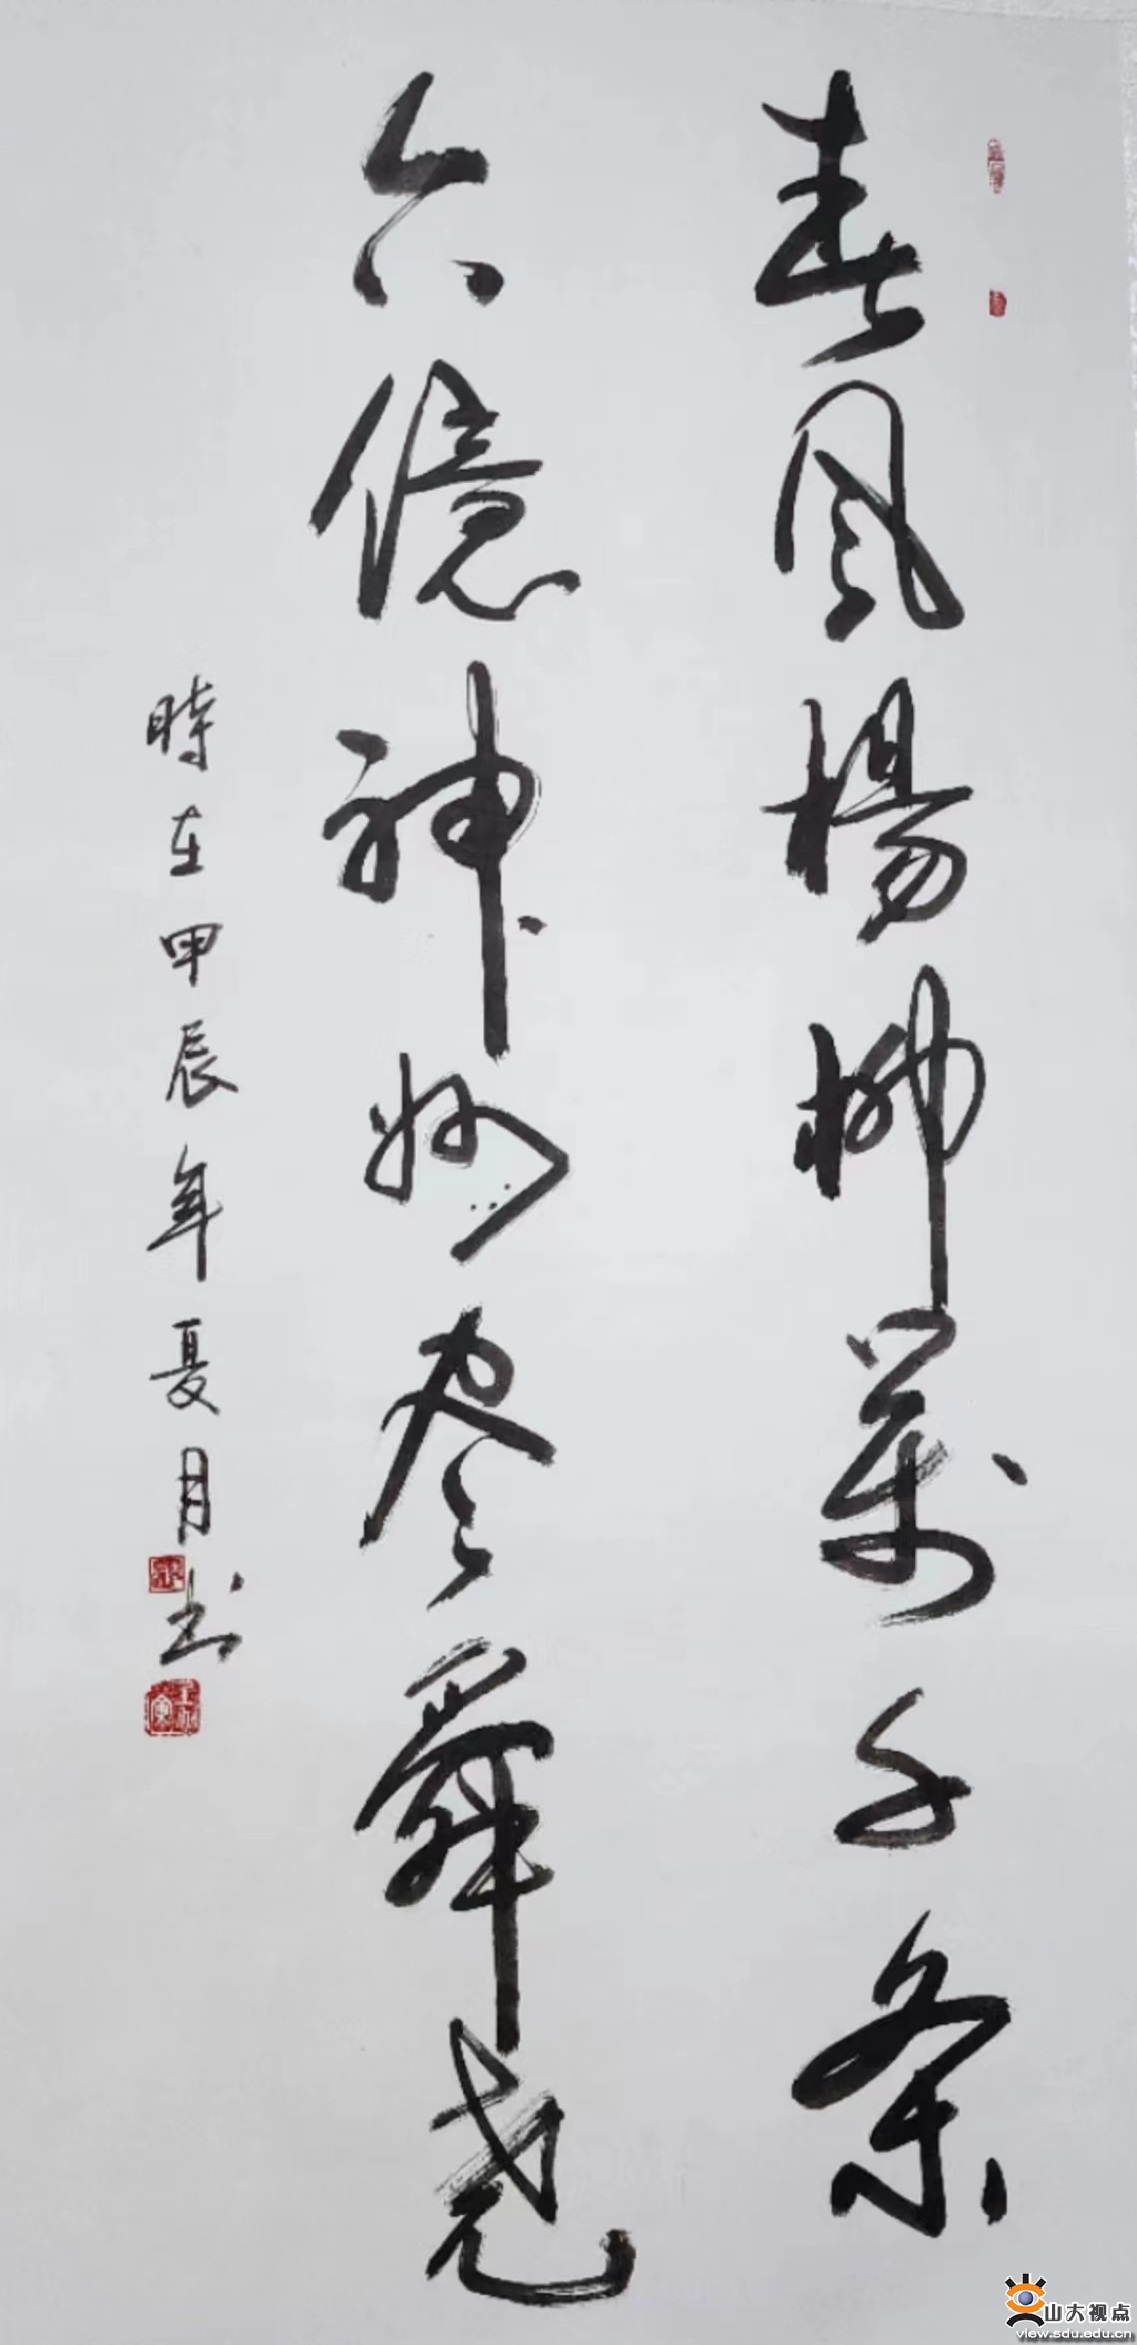 春风楊柳萬千条
六億神妙尽舜尧
時在甲辰年夏月书
山大视点
view.sdu.edu.cn